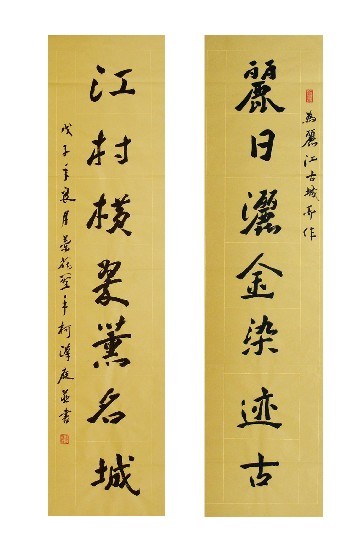 為麗江古城而作
麗日灑金染迹古
江村横翠薰名城
戊子年良月 年柯 庭並書